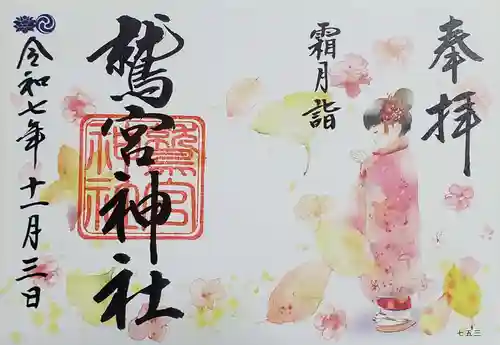 奉拝
霜月詣
鷲宮神社
令和七年十一月三日
鷲宮神社
七五三